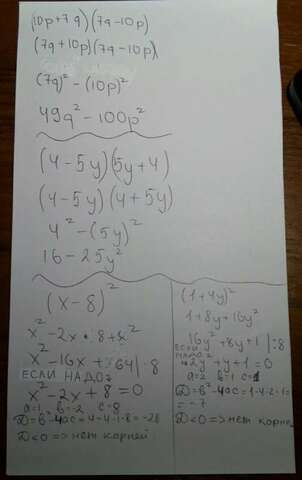 (10p+7q)(7q-10p)
(7q+10p)(7q-10p)
(7q)² - (10p)²
49q² - 100p²
(4-5y)(5y+4)
(4-5y)(4+5y)
4² - (5y)²
16 - 25y²
(x-8)²
x² - 2x · 8 + 8²
x² - 16x + 64 | : 8
ЕСЛИ НАДО?
x² - 2x + 8 = 0
a=1 b=-2 c=8
D=b²-4ac=4-4·1·8=-28
D<0 => нет корней
(1+4y)²
1+8y+16y²
16y²+8y+1 | :8
ЕСЛИ НАДО?
2y+y+1=0
a=2 b=1 c=1
D=b²-4ac=1-4·2·1=
=-7
D<0 => нет корней